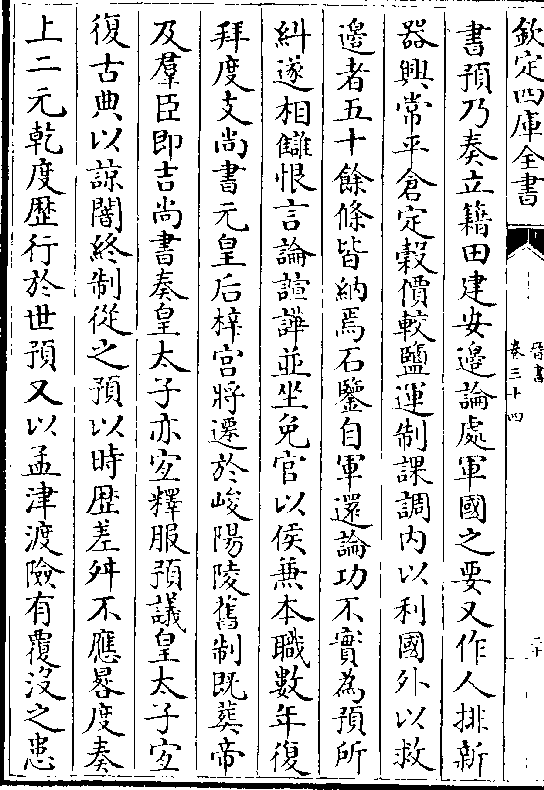 欽定四庫全書
晉書
卷三十四
二十
書預乃奏立籍田建安邊論處軍國之要又作人排新
器興常平倉定穀價較鹽運制課調內以利國外以救
邊者五十餘條皆納焉石鑒自軍還論功不實為預所
糾遂相讎恨言論諠譁並坐免官以侯兼本職數年復
拜度支尚書元皇后梓宮將遷於峻陽陵舊制既葬帝
及羣臣即吉尚書奏皇太子亦宜釋服預議皇太子宜
復古典以諒闇終制從之預以時歴差舛不應晷度奏
上二元乾度歴行於世預又以孟津渡險有覆沒之患